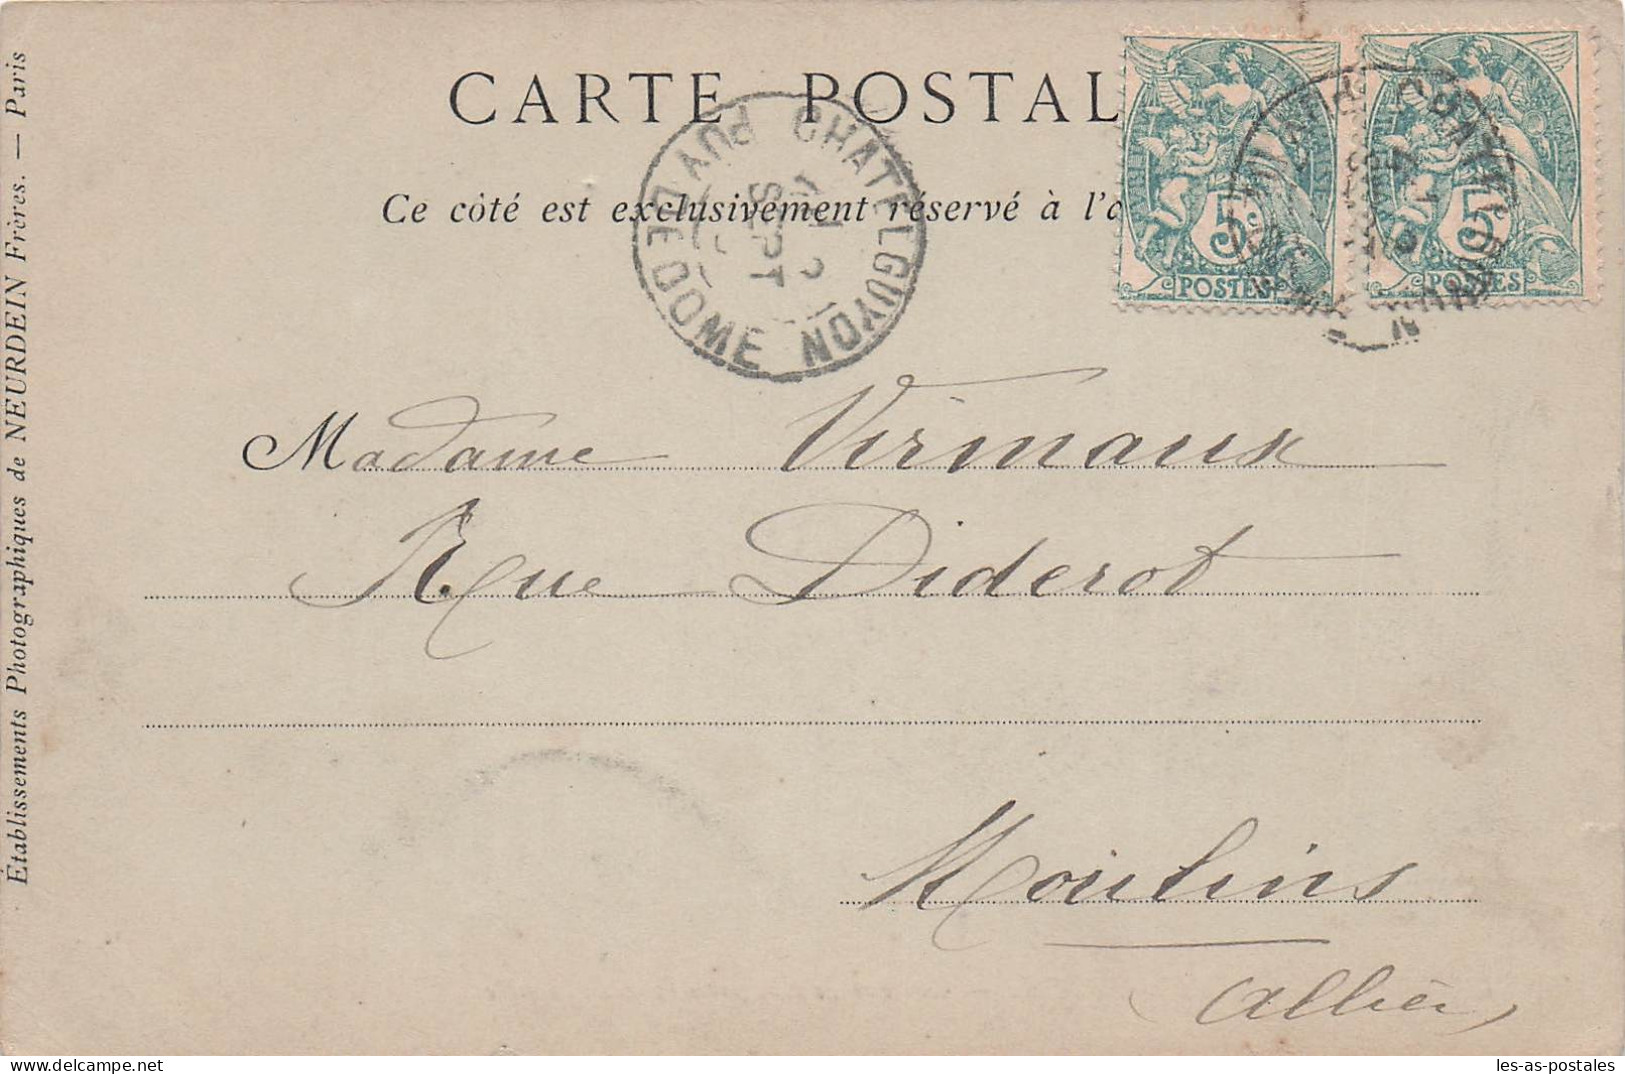 CARTE POSTAL
Ce côté est exclusivement réservé à l'a
CHATELGUYON
PUY DE DOME
SEPT
5
POSTES
5
POSTES
Madame Virmaux
Rue Diderot
Moulins
(Allier)
Établissements Photographiques de NEURDEIN Frères. — Paris
les-as-postales